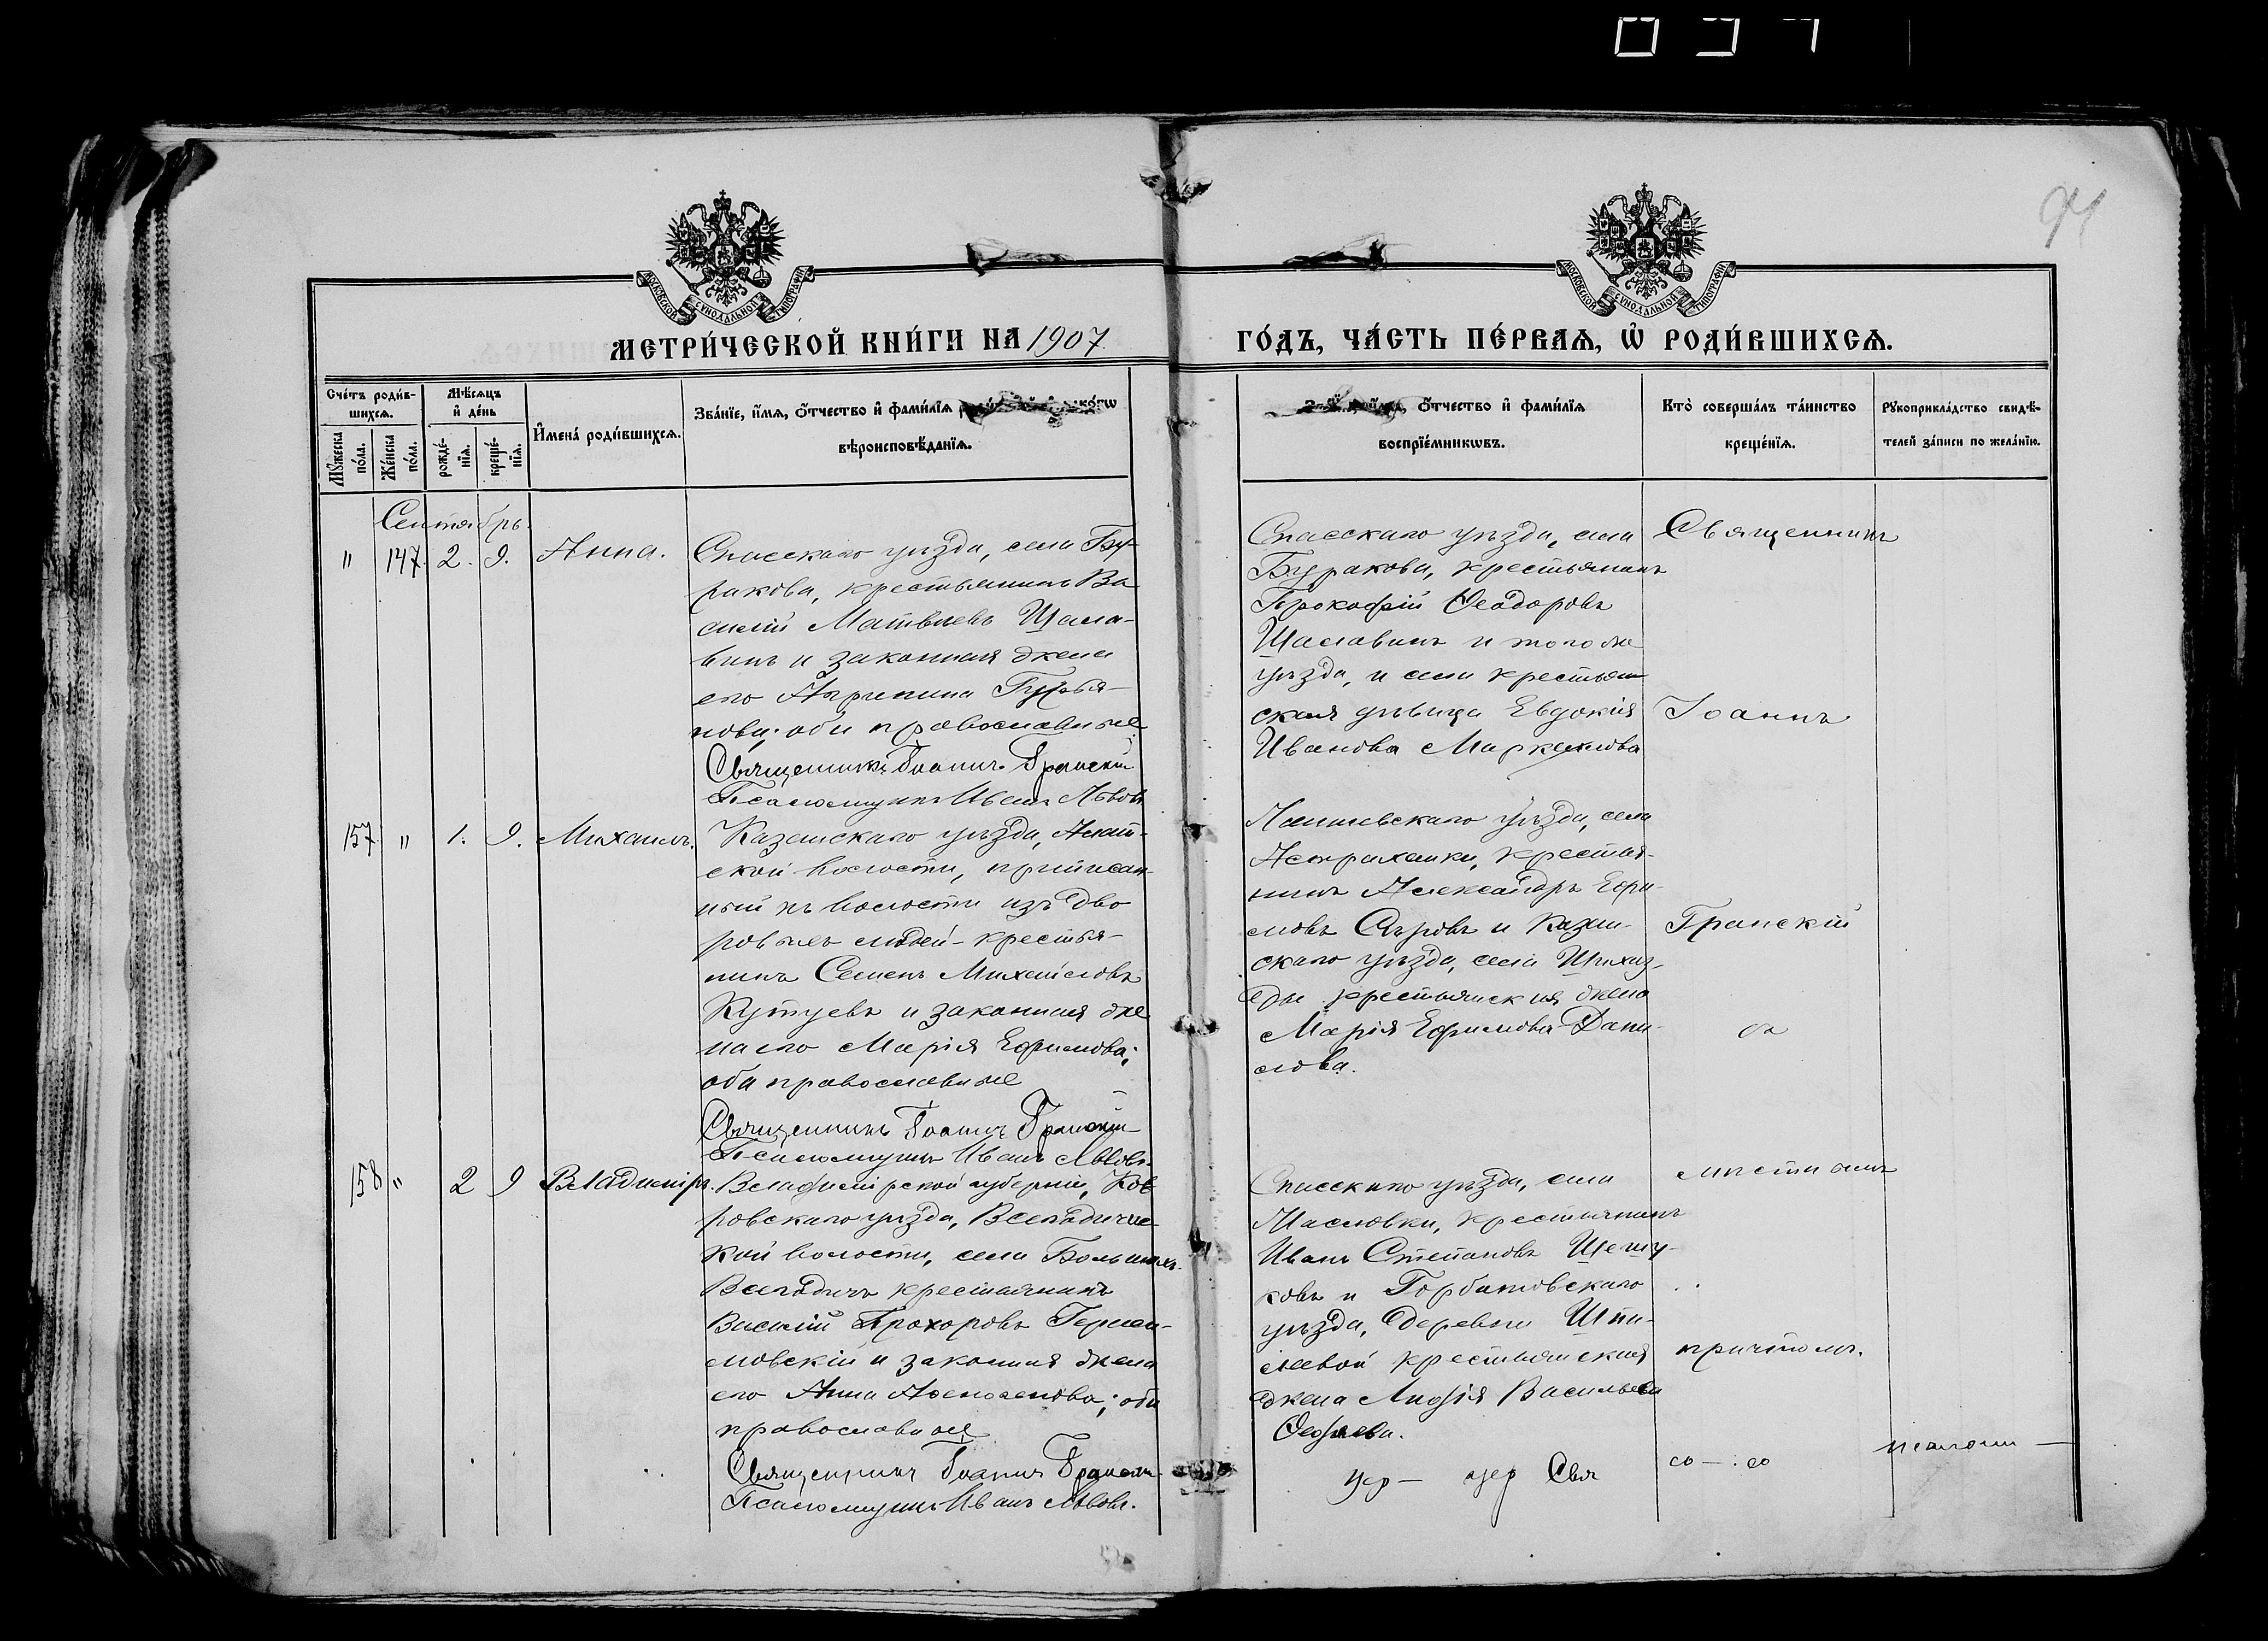 94
МОСКОВСКОЙ СѴНОДАЛЬНОЙ ТИПОГРАФІИ
МОСКОВСКОЙ СѴНОДАЛЬНОЙ ТИПОГРАФІИ
МЕТРИ́ЧЕСКОЙ КНИ́ГИ НА 1907
ГО́ДЪ, ЧА́СТЬ ПЕ́РВАѦ, Ѡ҆ РОДИ́ВШИХСѦ.
Сче́тъ роди́в-
шихсѧ.
Мꙋжеска по́ла.
Же́нска по́ла.
Мѣ́сѧцъ
и҆ де́нь
рожде́-
нїѧ.
креще́-
нїѧ.
И҆мена́ роди́вшихсѧ.
Зва́нїе, и҆́мѧ, ѻ҆́тчество и҆ фами́лїѧ
вѣроисповѣ́данїѧ.
ѻ҆́тчество и҆ фами́лїѧ
воспрїе́мникѡвъ.
Кто̀ соверша́лъ та́инство
креще́нїѧ.
Рꙋкоприкла́дство свидѣ́-
телей за́писи по жела́нїю.
Сентябрь.
" 147. 2. 9. Анна.
Спасскаго уѣзда, села Бу-
ракова, крестьянинъ Ва
силій Матвѣевъ Шала-
винъ и законная жена
его Агрипина Гурья-
нова; оба православные
Священникъ Іоаннъ Гранскій
Псаломщикъ Иванъ Львовъ
Спасскаго уѣзда, села
Буракова, крестьянинъ
Прокофій Ѳеодоровъ
Шалавинъ и того же
уѣзда, и села крестьян
ская дѣвица Евдокія
Иванова Маркелова
Священникъ
Іоаннъ
157. " 1. 9. Михаилъ.
Казанскаго уѣзда,
ской волости, приписан-
ный къ волости изъ дво
ровыхъ людей - крестья-
нинъ Семенъ Михайловъ
Кутуевъ и законная же
на его Марія Ефимова;
оба православные
Священникъ Іоаннъ Гранскій
Псаломщикъ Иванъ Львовъ.
Лаишевскаго уѣзда, села
Астраханки, крестья-
нинъ Александръ Ефи-
мовъ и Казан-
скаго уѣзда, села Шигаз-
ды крестьянская жена
Марія Ефимова Дани-
лова.
Гранскій
съ
158 " 2 9 Владиміръ.
Владимірской губерніи, Ков
ровскаго уѣзда, Всегодичес-
кой волости, села Большихъ
Всегодичъ крестьянинъ
Василій Прохоровъ
и законная жена
его Анна; оба
православные
Священникъ Іоаннъ Гранскій
Псаломщикъ Иванъ Львовъ.
Спасскаго уѣзда, села
Масловки, крестьянинъ
Иванъ Степановъ Шешу-
ковъ и Горбатовскаго
уѣзда, деревни Шпи-
левой крестьянская
жена Лидія Васильева
мѣстнымъ
причтомъ.